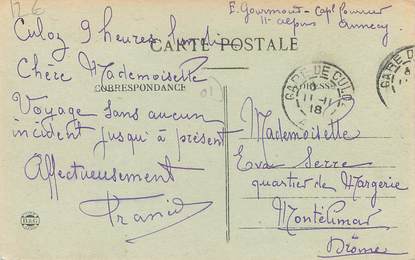 Culoz 9 heures lundi
E. Gourmont - Capl fourrier
11e alpins Annecy
CARTE POSTALE
Chère Mademoiselle
CORRESPONDANCE
Voyage sans aucun
incident jusqu'à présent
Affectueusement
Francis
GARE DE CULOZ
11-11
18
Mademoiselle
Eva Serre
quartier de Margerie
Montélimar
Drôme